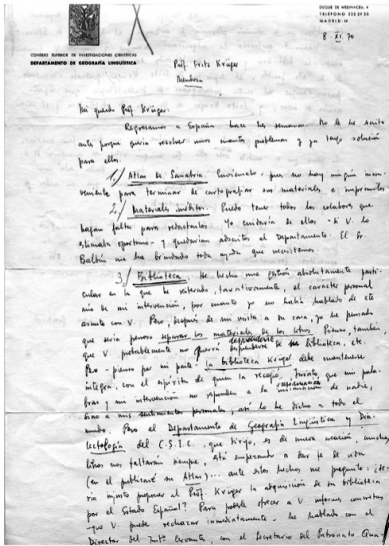 DUQUE DE MEDINACELI, 4
TELEFONO 222 29 20
MADRID-14
CONSEJO SUPERIOR DE INVESTIGACIONES CIENTIFICAS
DEPARTAMENTO DE GEOGRAFIA LINGÜISTICA
8 XI. 70
Prof. Fritz Krüger
Mendoza
Mi querido Prof. Krüger:
Regresamos a España hace tres semanas. No le he escrito
antes porque quería resolver unos cuantos problemas y ya tengo solución
para ellos.
1) Atlas de Sanabria. Envíemelo, pues no hay ningún incon-
veniente para terminar de cartografiar sus materiales e imprimirlos
2) Materiales inéditos. Puedo tener todos los colabores que
hagan falta para redactarlos. Yo cuidaría de ellos - si V. lo
estimaba oportuno - y quedarían adscritos al Departamento. El Sr.
Balbín me ha brindado toda ayuda que necesitemos.
3) Biblioteca. He hecho una gestión absolutamente parti-
cular en la que he reiterado, taxativamente, el carácter personal
de mi intervención, por cuanto yo no había hablado de este
asunto con V. Pero, después de mi visita a su casa, yo he pensado
que sería penoso separar los materiales de los libros. Pienso, también,
que V. probablemente no querrá desprenderse de su biblioteca, etc.
Pero - pienso por mi parte - la biblioteca Krüger debe mantenerse
íntegra, con el espíritu de quien la recogió. Insisto, que mis pala-
bras y mi intervención no responden a la de nadie,
sino a mis sentimientos personales, así lo he dicho a todo el
mundo. Para el Departamento de Geografía Lingüística y Dia-
lectología del C.S.I.C., que dirijo, es de nueva creación, muchos
libros nos faltarán siempre, está empezando a dar fe de vida
(en el publicaré su Atlas)... ante estos hechos me pregunto: ¿Se-
ría injusto proponer al Prof. Krüger la adquisición de su biblioteca
por el Estado Español? Para poderle ofrecer a V. informes concretos
que V. puede rechazar inmediatamente, he hablado con el
Director del Inst. Cervantes, con el Secretario del Patronato Qua-